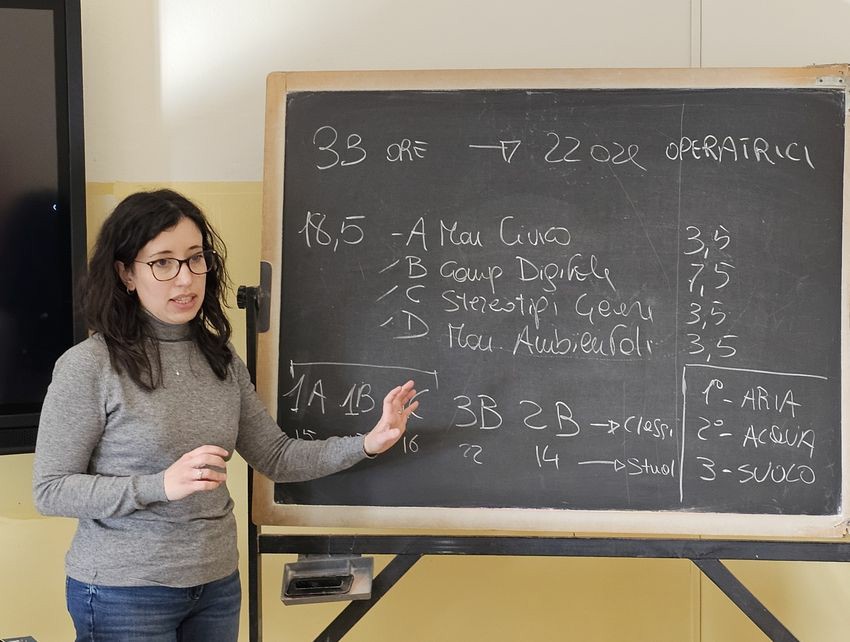 3B ORE → 22 ore OPERATRICI
18,5 - A Mon Civico 3,5
- B Comp Digitale 7,5
- C Stereotipi Generi 3,5
- D Mon Ambientali 3,5
1A 1B 3B 2B → Classi
16 22 14 → Stud
1°- ARIA
2°- ACQUA
3 - SUOLO